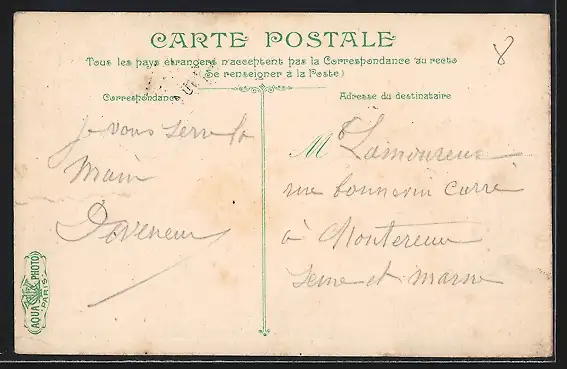 CARTE POSTALE
8
Tous les pays étrangers n'acceptent pas la Correspondance au recto
(Se renseigner à la Poste)
Correspondance
Adresse du destinataire
Je vous serre la
main
M Lamoureux
rue carré
à Montereau
Seine et Marne
AQUA PHOTO
PARIS